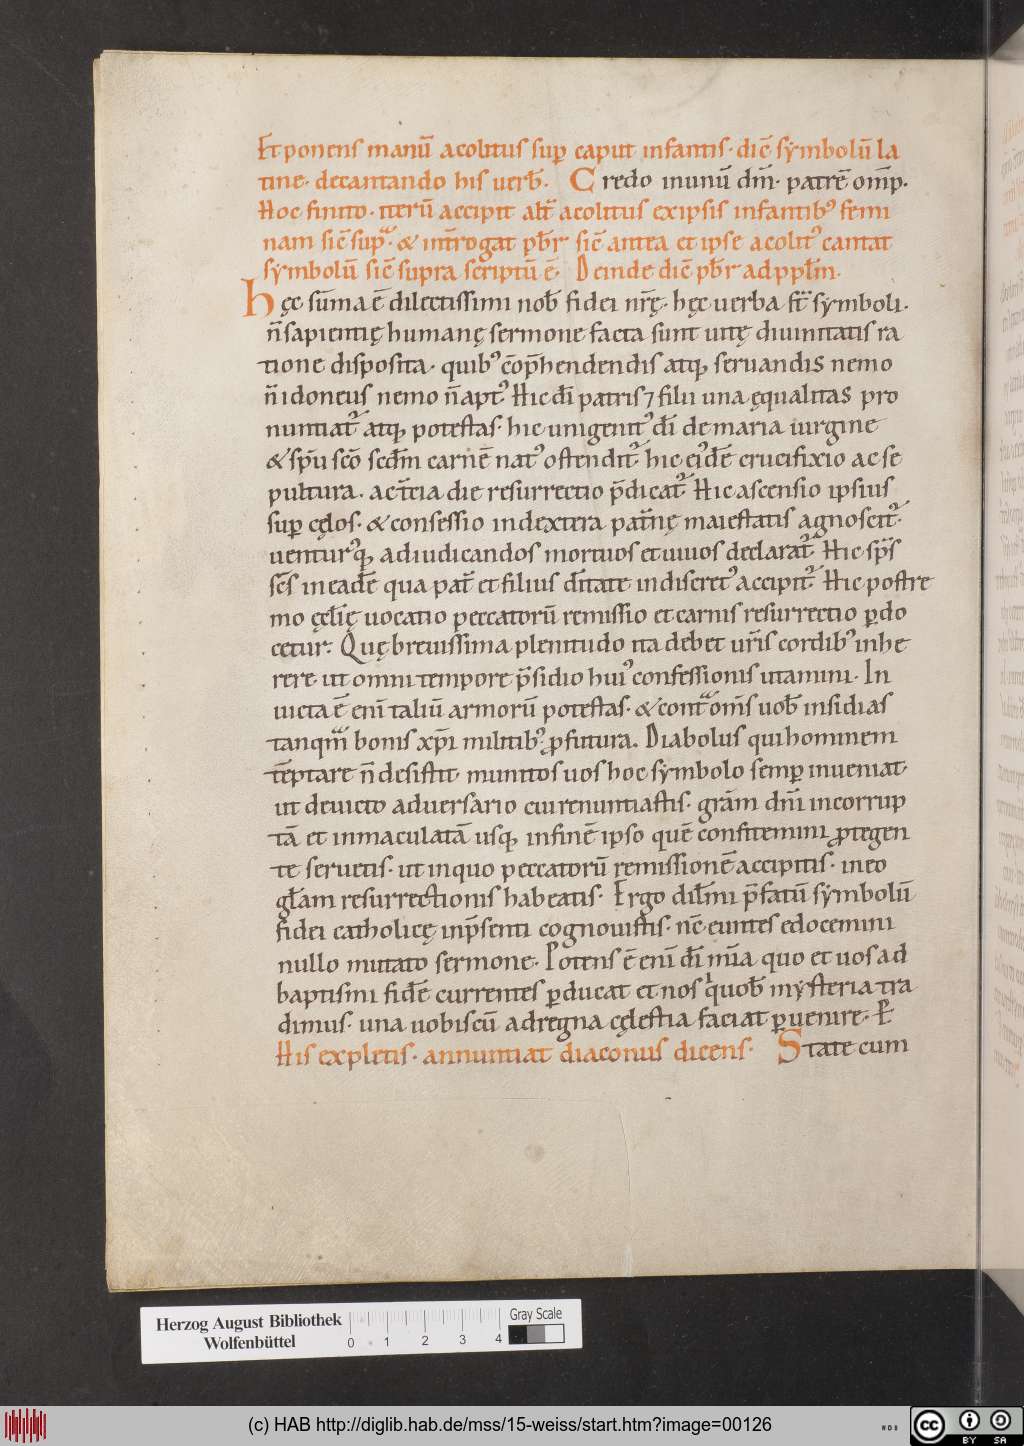 Et ponens manū acolitus sup caput infantis· dic̄ symbolū la
tine· decantando his uerb̄. Credo in unū dm̄· patrē om̄p·
Hoc finito· iterū accipit alt̄ acolitus ex ipsis infantib; femi
nam sic̄ sup̄· & int̄rogat pb̄r sic̄ antea et ipse acolit' cantat
symbolū sic̄ supra scriptū ē· Deinde dic̄ pb̄r ad ppl̄m·
hęc sūma ē dilectissimi nob̄ fidei nr̄ę· hęc uerba st̄ symboli·
n̄ sapientię humanę sermone facta sunt uitę diuinitatis ra
tione disposita· quib; cōp̄hendendis atq; seruandis nemo
n̄ idoneus nemo n̄ apt' Hic dī patris ⁊ filii una ęqualitas pro
nuntiat̄ atq; potestas· hic unigenit' dī de maria uirgine
& sp̄u scō scd̄m carnē nat' ostendit̄ hic ei'dē crucifixio ac se
pultura· ac t̄cia die resurrectio p̄dicat̄ Hic ascensio ipsius
sup cęlos· & consessio in dextera pat̄nę maiestatis agnoscit̄·
uentur'q; ad iudicandos mortuos et uiuos declarat̄ Hic sp̄s
sc̄s in eadē qua pat̄ et filius dn̄tate indiscret' accipit̄ Hic postre
mo ęcl̄ię uocatio peccatorū remissio et carnis resurrectio p̱do
cetur· Quę breuissima plenitudo ita debet ur̄is cordib; inhe
rere· ut omni tempore p̄sidio hui' confessionis utamini· In
uicta ē eni̅ taliū armorū potestas· & cont̄ om̄s uob̄ insidias
tanqm̄ bonis xp̄i militib; profutura. Diabolus qui hominem
tēptare n̄ desistit· munitos uos hoc symbolo semp inueniat·
ut deuicto aduersario cui renuntiastis· grām dn̄i incorrup
tā et inmaculatā usq; in finē ipso quē confitemini protegen
te seruetis· ut in quo peccatorū remissionē accipitis· in eo
gl̄am resurrectionis habeatis· Ergo dil̄mi p̄fatū symbolū
fidei catholicę in p̄senti cognouistis· nc̄ euntes edocemini
nullo mutato sermone· Potens ē enī dī mīa quo et uos ad
baptismi fidē currentes p̱ducat et nos qui uob̄ mysteria tra
dimus· una uobiscū ad regna cęlestia faciat p̱uenire· P̱
His expletis· annuntiat diaconus dicens· State cum
Herzog August Bibliothek
Wolfenbüttel
0 1 2 3 4
Gray Scale
(c) HAB http://diglib.hab.de/mss/15-weiss/start.htm?image=00126
cc BY SA